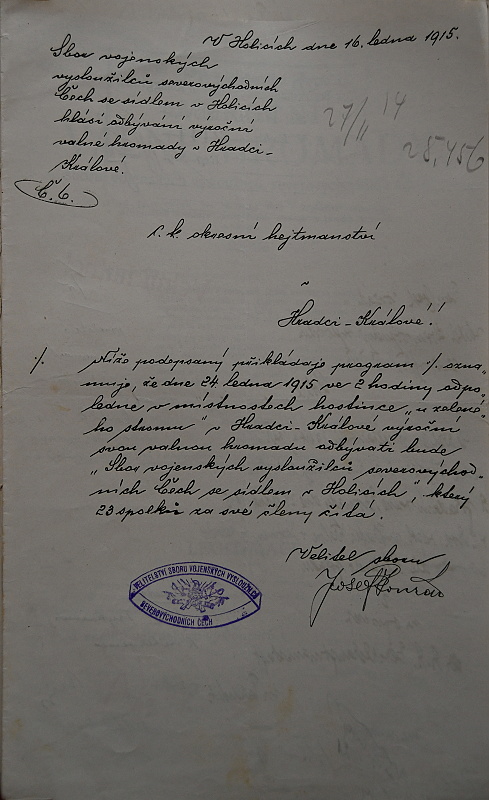 V Holicích dne 16. ledna 1915.
Sbor vojenských
vysloužilců severovýchodních
Čech se sídlem v Holicích
hlásí odbývání výroční
valné hromady v Hradci-
Králové.
27/II 14
28,456
Č. 6.
c. k. okresní hejtmanství
v
Hradci-Králové!
·/. Níže podepsaný přikládaje program ·/. ozna„
muje, že dne 24 ledna 1915 ve 2 hodiny odpo„
ledne v místnostech hostince „u zelené„
ho stromu" v Hradci-Králové výroční
svou valnou hromadu odbývati bude
„Sbor vojenských vysloužilců severovýchod„
ních Čech se sídlem v Holicích", který
23 spolků za své členy čítá.
Velitel sboru
Josef Konrád
VELITELSTVÍ SBORU VOJENSKÝCH VYSLOUŽILCŮ
SEVEROVÝCHODNÍCH ČECH